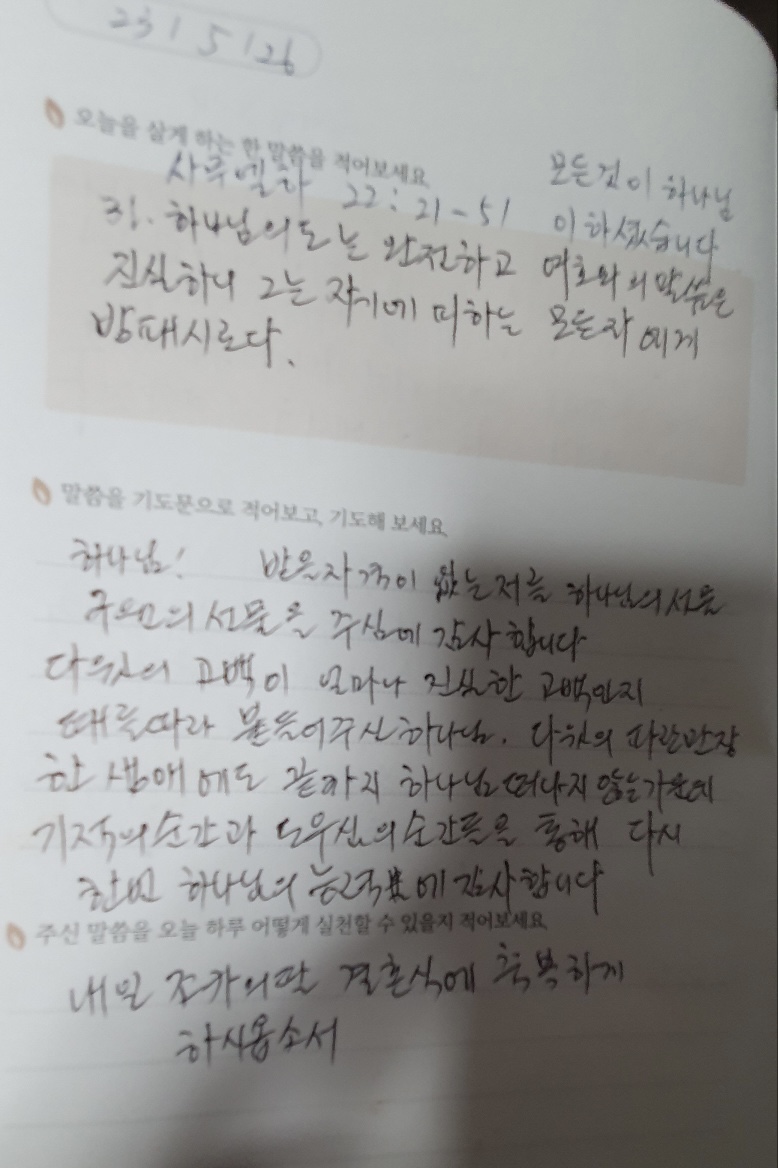 23 / 5 / 26
오늘을 살게 하는 한 말씀을 적어보세요
사무엘하 22 : 21 - 51
모든것이 하나님
이 하셨습니다
31. 하나님의 도는 완전하고 여호와의 말씀은
진실하니 그는 자기에 피하는 모든자에게
방패시로다.
말씀을 기도문으로 적어보고, 기도해 보세요
하나님! 받을자격이 없는저를 하나님의선물
구원의 선물을 주심에 감사합니다
다윗의 고백이 얼마나 진실한 고백인지
때를따라 붙들어주신하나님. 다윗의 파란만장
한 생애에도 끝까지 하나님 떠나지 않는가운데
기적의순간과 도우심의순간들을 통해 다시
한번 하나님의 능력에 감사합니다
주신 말씀을 오늘 하루 어떻게 실천할 수 있을지 적어보세요
내일 조카의딸 결혼식에 축복하게
하시옵소서